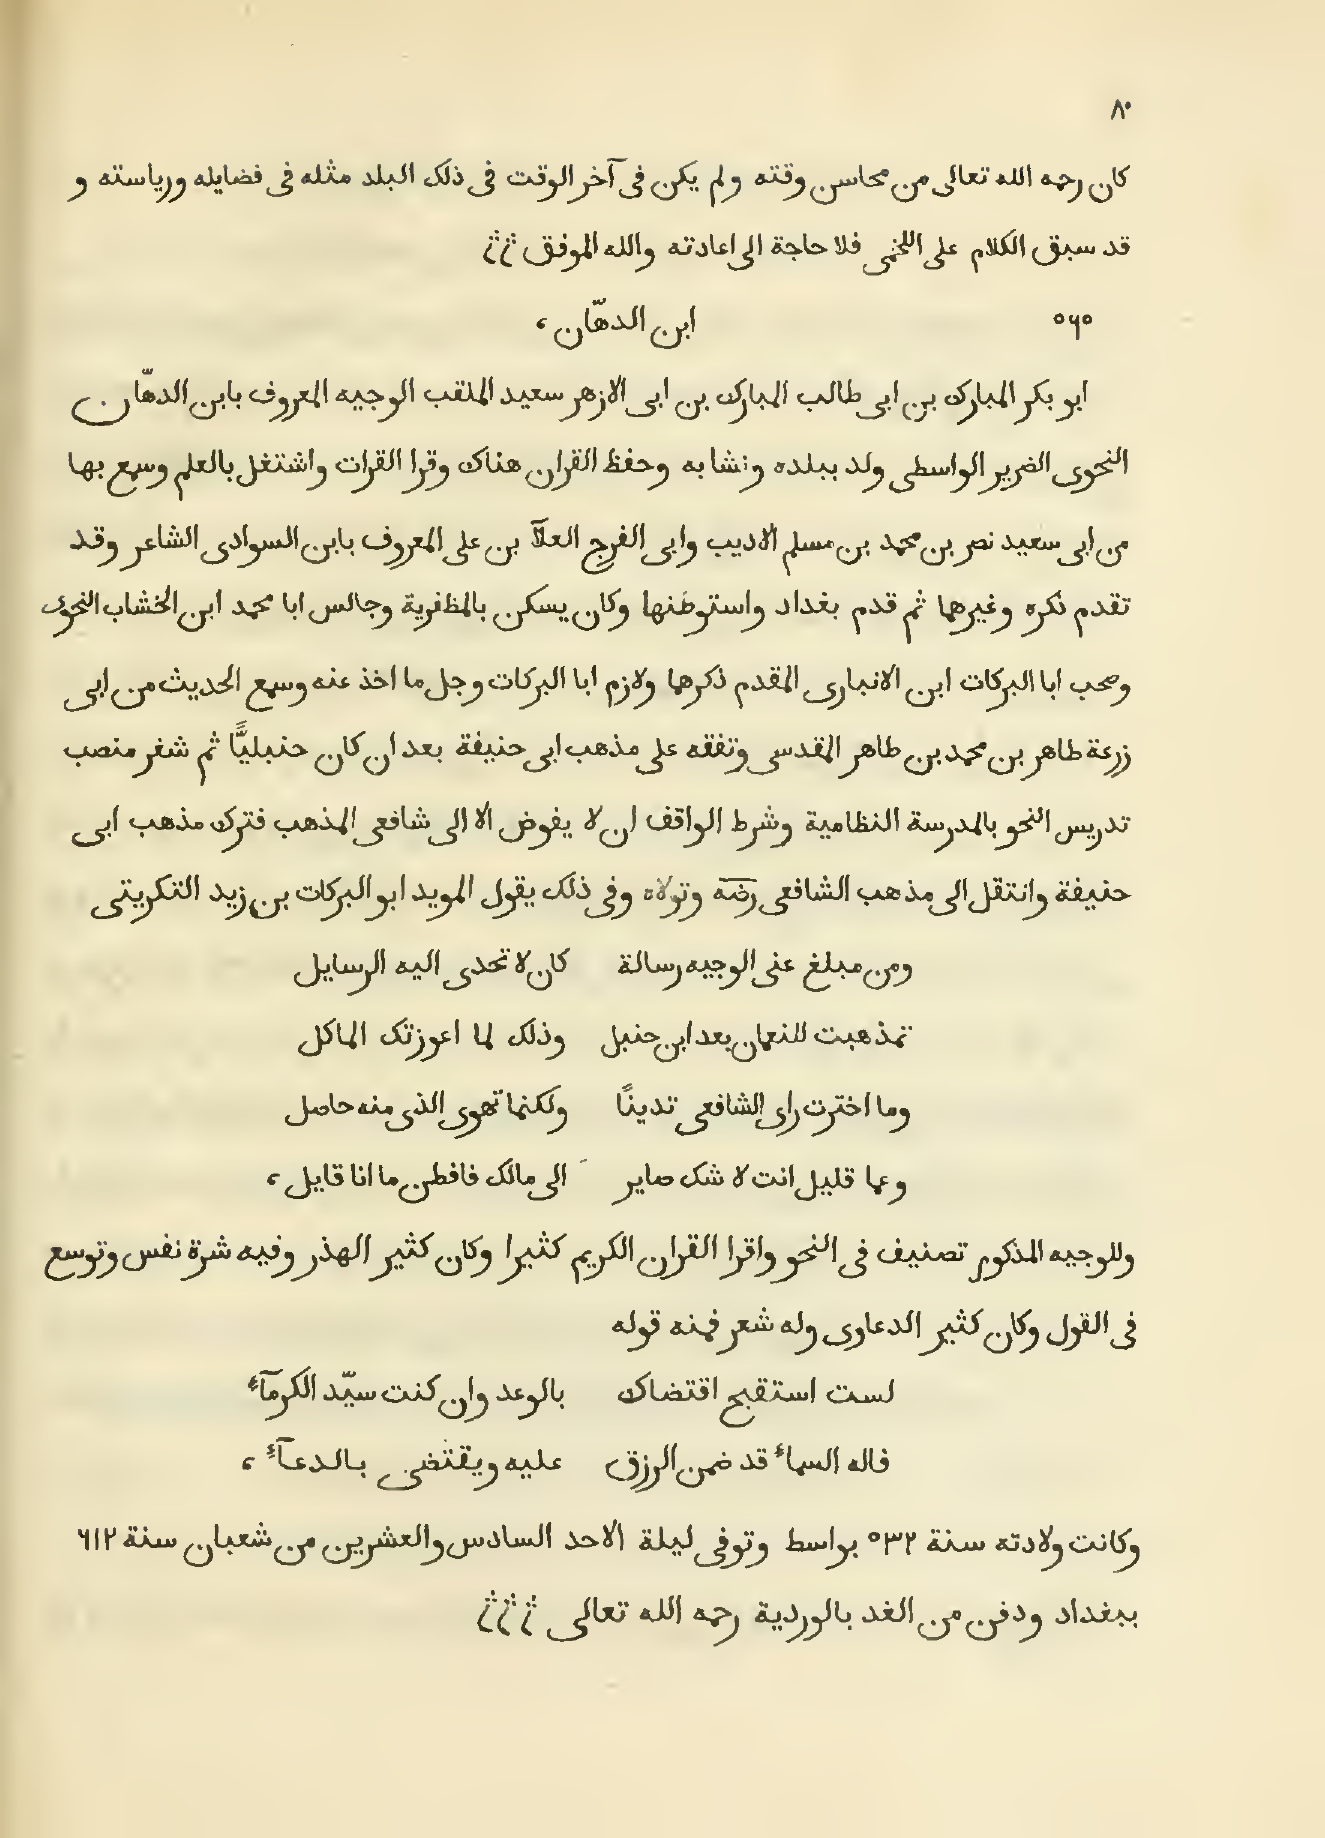 ٨٠
كان رحمه الله تعالى من محاسن وقته ولم يكن فى آخر الوقت فى ذلك البلد مثله فى فضايله ورياسته و
قد سبق الكلام على اللخمى فلا حاجة الى اعادته والله الموفق
٥٦٥ ابن الدهّان،
ابو بكر المبارك بن ابى طالب المبارك بن ابى الازهر سعيد الملقب الوجيه المعروف بابن الدهّان
النحوى الضرير الواسطى ولد ببلده ونشا به وحفظ القران هناك وقرا القرات واشتغل بالعلم وسمع بها
من ابى سعيد نصر بن محمد بن مسلم الاديب وابى الفرج العلآ بن على المعروف بابن السوادى الشاعر وقد
تقدم ذكره وغيرهما ثم قدم بغداد واستوطنها وكان يسكن بالمظفرية وجالس ابا محمد ابن الخشاب النحوى
وصحب ابا البركات ابن الانبارى المقدم ذكرهما ولازم ابا البركات وجل ما اخذ عنه وسمع الحديث من ابى
زرعة طاهر بن محمد بن طاهر المقدسى وتفقه على مذهب ابى حنيفة بعد ان كان حنبليًّا ثم شغر منصب
تدريس النحو بالمدرسة النظامية وشرط الواقف ان لا يفوض الا الى شافعى المذهب فترك مذهب ابى
حنيفة وانتقل الى مذهب الشافعى رضه وتولاه وفى ذلك يقول المويد ابو البركات بن زيد التكريتى
ومن مبلغ عنى الوجيه رسالة كان لا تجدى اليه الرسايل
تمذهبت للنعمان بعد ابن حنبل وذلك لما اعوزتك الماكل
وما اخترت راى الشافعى تدينًا ولكنما تهوى الذى منه حاصل
وعما قليل انت لا شك صاير الى مالك فافطن ما انا قايل،
وللوجيه المذكور تصنيف فى النحو واقرا القران الكريم كثيرا وكان كثير الهذر وفيه شرة نفس وتوسع
فى القول وكان كثير الدعاوى وله شعر فمنه قوله
لست استقبح اقتضاك بالوعد وان كنت سيّد الكرمآء
فاله السماء قد ضمن الرزق عليه ويقتضى بالدعآء،
وكانت ولادته سنة ٥٣٢ بواسط وتوفى ليلة الاحد السادس والعشرين من شعبان سنة ٦١٢
ببغداد ودفن من الغد بالوردية رحمه الله تعالى